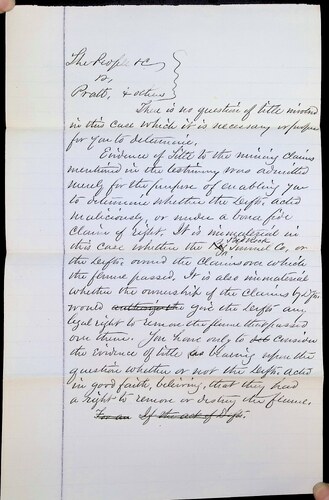 The People &c
vs
Pratt, & others
There is no question of title involved
in this case which it is necessary or proper
for you to determine.
Evidence of Title to the mining claims
mentioned in the testimony was admitted
merely for the purpose of enabling you
to determine whether the Defts. acted
maliciously or under a bona fide
claim of right. It is immaterial in
this case whether the Tunnel Co. or
the Defts. owned the Claims over which
the flume passed. It is also immaterial
whether the ownership of the Claims by Defts.
would authorize the give the Defts. any
legal right to remove the flume that passed
over them. You have only to consider
the Evidence of title as bearing upon the
question whether or not the Defts. acted
in good faith, believing, that they had
a right to remove or destroy the flume.
For an If the act of Defts.